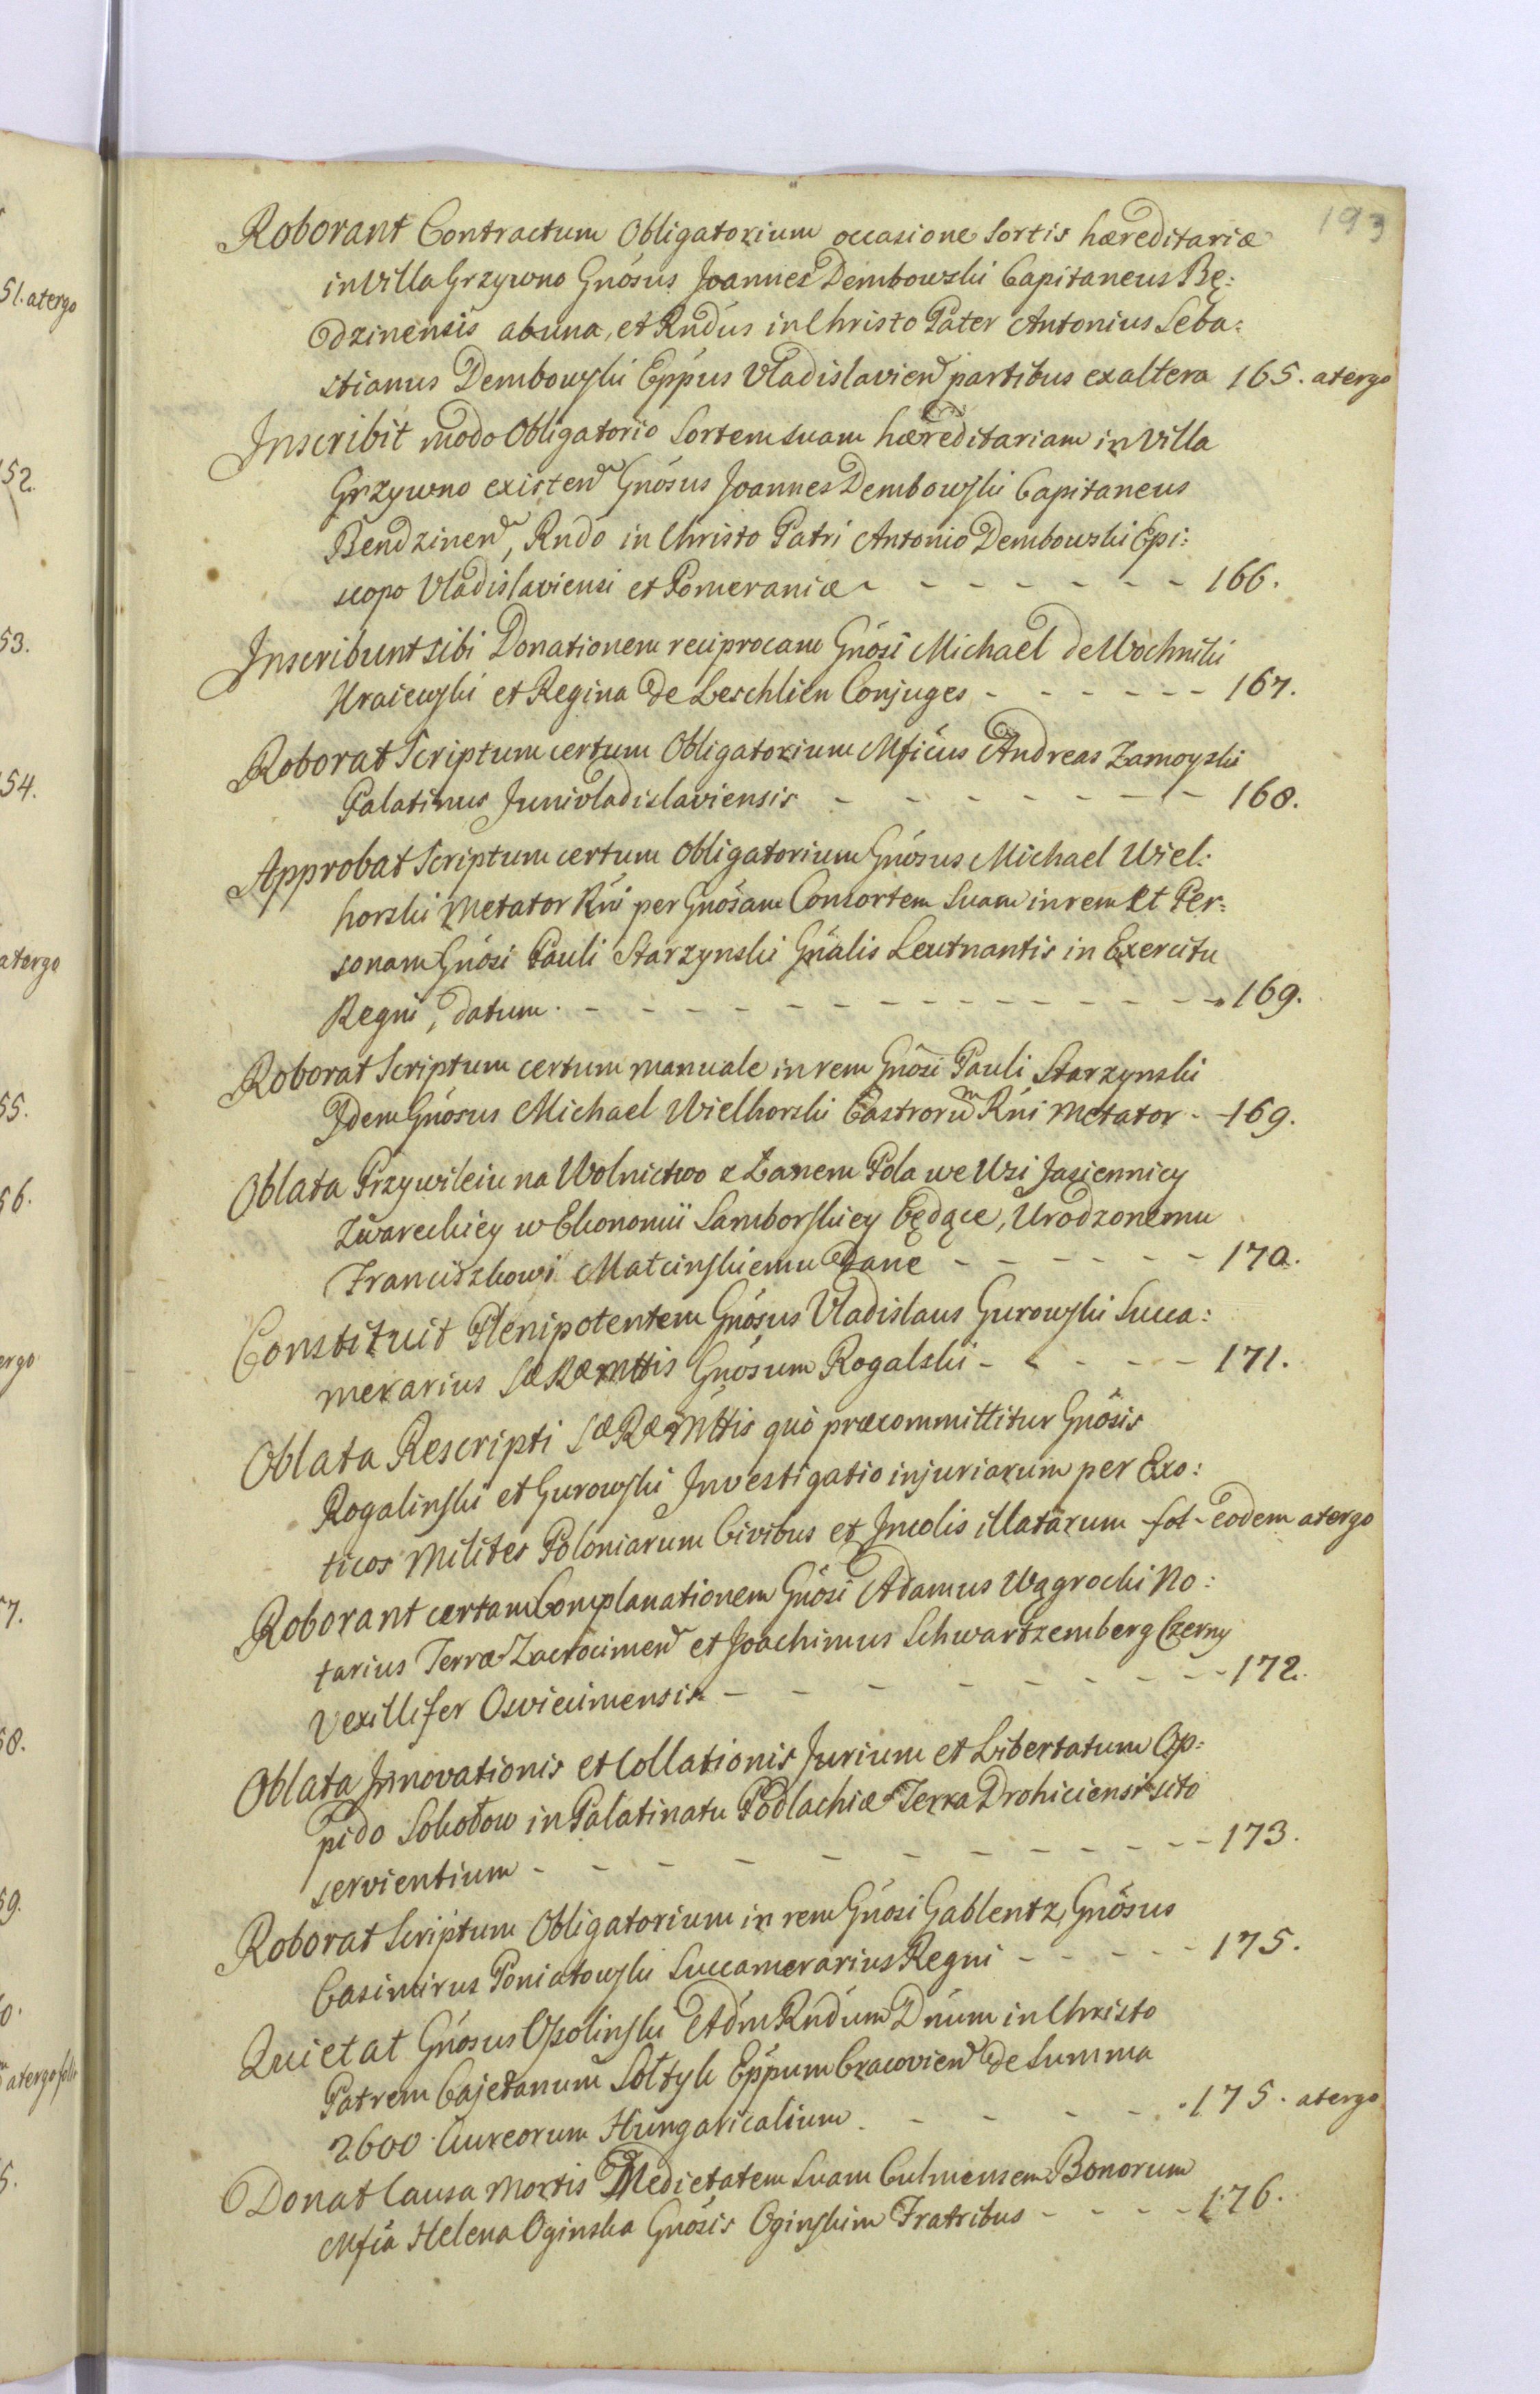 193
Roborant Contractum Obligatorium occasione Sortis hæreditariæ
in Villa Grzywno Gnósus Joannes Dembowski Capitaneus Bę:
dzinensis ab una, et Rndus in Christo Pater Antonius Seba:
stianus Dembowski Eppus Vladislavien partibus ex altera 165. atergo
Inscribit modo Obligatorio Sortem suam hæreditariam in Villa
Grzywno existen Gnósus Joannes Dembowski Capitaneus
Bendzinen, Rndo in Christo Patri Antonio Dembowski Epi:
scopo Vladislaviensi et Pomeraniæ - - - - - - - 166.
Inscribunt sibi Donationem reciprocam Gnósi Michael de Wochniki
Kraiewski et Regina de Leschlien Conjuges - - - - - - 167.
Roborat Scriptum certum Obligatorium Mficus Andreas Zamoyski
Palatinus Junivladislaviensis - - - - - - - - 168.
Approbat Scriptum certum Obligatorium Gnósus Michael Wiel:
horski Metator Rni per Gnósam Consortem Suam in rem et Per:
sonam Gnósi Pauli Starzynski Gnalis Leutnantis in Exercitu
Regni, datum. - - - - - - - - - - - - - - 169.
Roborat Scriptum certum manuale in rem Gnósi Pauli Starzynski
Idem Gnósus Michael Wielhorski Castrorum Rni Metator - - 169.
Oblata Przywileiu na Wolnictwo z Łanem Pola we Wsi Jasiennicy
Zwareckiey w Ekonomii Samborskiey będące, Urodzonemu
Franciszkowi Matcinskiemu Dane - - - - - - 170.
Constituit Plenipotentem Gnósus Vladislaus Gurowski Succa:
merarius SæRæMttis Gnósum Rogalski - - - - - 171.
Oblata Rescripti SæRæMttis quò præcommittitur Gnósis
Rogalinski et Gurowski Investigatio injuriarum per Exo:
ticos Milites Poloniarum Civibus et Incolis illatarum - fol - eodem atergo
Roborant certam Complanationem Gnósi Adamus Wągrocki No:
tarius Terræ Zacrocimen et Joachimus Schwartzemberg Czerny
Vexillifer Osviecimensis - - - - - - - - 172.
Oblata Innovationis et Collationis Jurium et Libertatum Op:
pido Sokołow in Palatinatu Podlachiæ Terra Drohiciensi sito
servientium - - - - - - - - - - 173.
Roborat Scriptum Obligatorium in rem Gnósi Gablentz, Gnósus
Casimirus Poniatowski Succamerarius Regni - - - - - 175.
Quietat Gnósus Ossolinski Adm Rndum Dnum in Christo
Patrem Cajetanum Sołtyk Eppum Cracovien de Summa
2600 Aureorum Hungaricalium - - - - - 175. atergo
Donat Causa Mortis Medietatem Suam Culmensem Bonorum
Mfica Helena Oginska Gnósis Oginskim Fratribus - - - - 176.
51. atergo
152.
53.
54.
atergo
55.
56.
ergo
57.
58.
59.